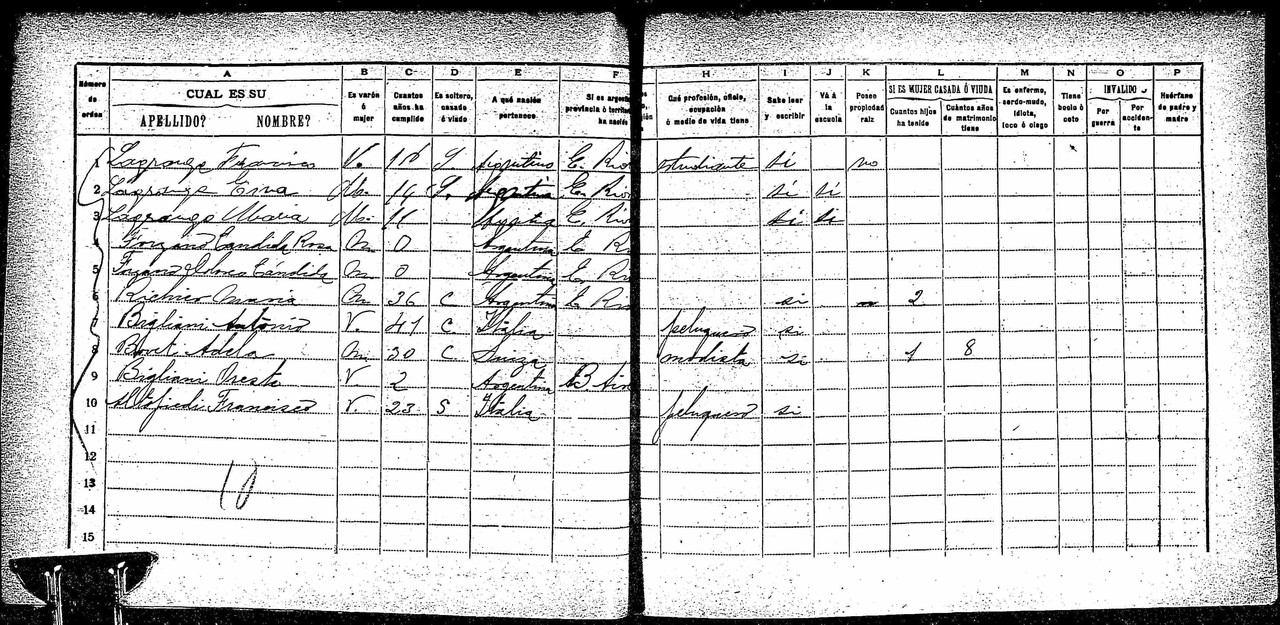 A B C D E F H I J K L M N O P
Número de orden CUAL ES SU APELLIDO? NOMBRE? Es varón ó mujer Cuantos años ha cumplido Es soltero, casado ó viudo A qué nación pertenece Si es argent provincia ó territo ha nacido Qué profesión, oficio, ocupación ó medio de vida tiene Sabe leer y escribir Vá á la escuela Posee propiedad raiz SI ES MUJER CASADA Ó VIUDA Cuantos hijos ha tenido Cuántos años de matrimonio tiene Es enfermo, sordo-mudo, idiota, loco ó ciego Tiene bocio ó coto INVALIDO Por guerra Por acciden- te Huérfano de padre y madre
1 Lagrange V. S Argentino E. Rio estudiante si no
2 Lagrange Ema M. 14 S. Argentina E. Rio si si
3 Lagrange Maria M. 11 Argentina E. Rio si si
4 Candida Rosa M 0 Argentina E R
5 Cándida M 0 Argentina E. R
6 Maria M 36 C Argentina E Rio si 2
7 Bigliani Antonio V. 41 C Italia peluquero si
8 Bovet Adela M 30 C Suiza modista si 1 8
9 Bigliani Oreste V. 2 Argentina B. Air
10 Francisco V. 23 S Italia peluquero si
11
12
13 10
14
15